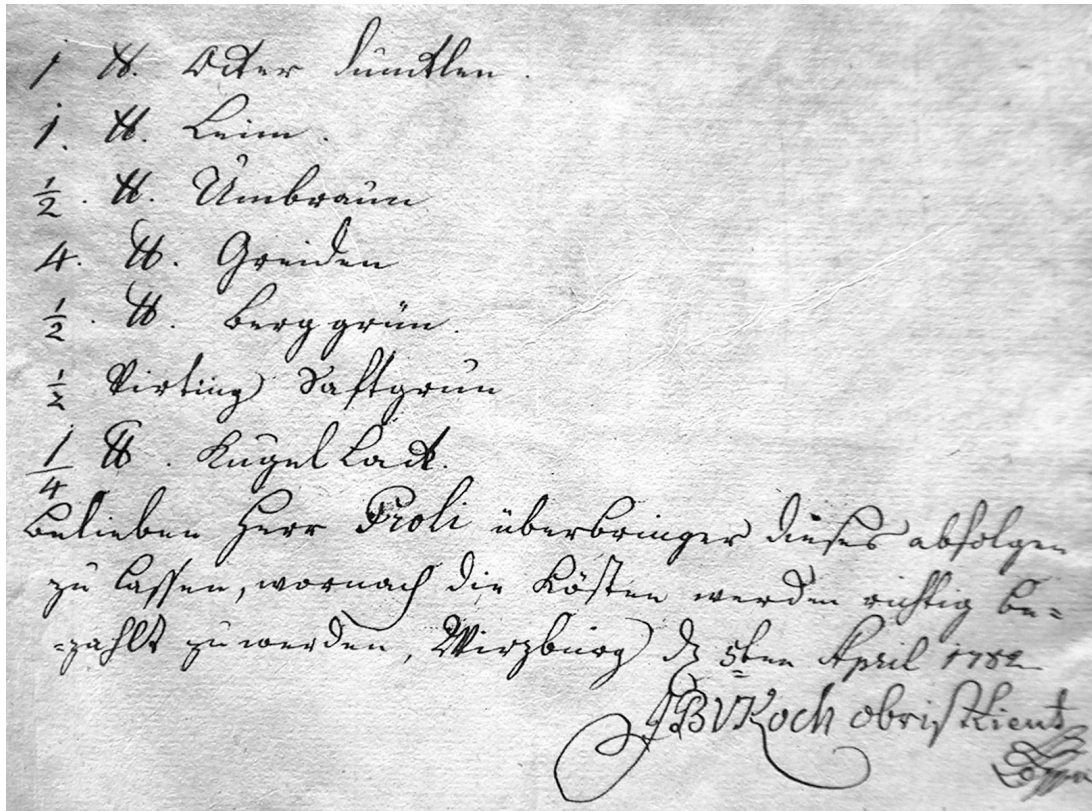 1 ℔. Ocker dunklen.
1. ℔. Leim.
½. ℔. Umbraun
4. ℔. Greiden
½. ℔. berggrün.
½ Virting Saftgrün
1/4 ℔. Kugel Lack.
belieben Herr Broli überbringer dieses abfolgen
zu lassen, wornach die Kösten werden richtig be=
=zahlt zu werden, Wirzburg d 5ten April 1782
JBVKoch obristLieut